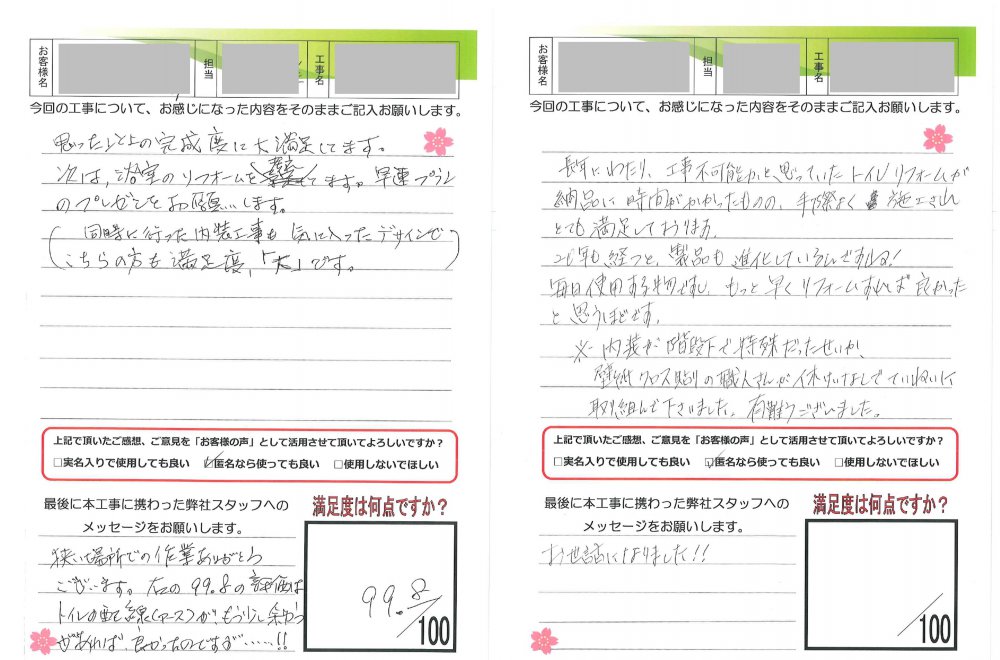 お客様名
担当
工事名
今回の工事について、お感じになった内容をそのままご記入お願いします。
思った以上の完成度に大満足してます。
次は、浴室のリフォームを考えてます。早速プラン
のプレゼンをお願いします。
(同時に行った内装工事も気に入ったデザインで
こちらの方も満足度、「大」です。)
上記で頂いたご感想、ご意見を「お客様の声」として活用させて頂いてよろしいですか?
□実名入りで使用しても良い ☑匿名なら使っても良い □使用しないでほしい
最後に本工事に携わった弊社スタッフへの
メッセージをお願いします。
狭い場所での作業ありがとう
ございます。右の99.8の評価は
トイレの配線(アース)が、もう少し余裕
があれば、良かったのですが……!!
満足度は何点ですか?
99.8/100
お客様名
担当
工事名
今回の工事について、お感じになった内容をそのままご記入お願いします。
長年にわたり、工事不可能かと思っていたトイレリフォームが
納品に時間がかかったものの、手際よく施工され
とても満足しております。
20年も経つと、製品も進化しているんですね!
毎日使用する物ですし、もっと早くリフォームすれば良かった
と思うほどです。
※内装が階段下で特殊だったせいか、
壁紙クロス貼りの職人さんが休けいなしでていねいに
取り組んで下さいました。有難うございました。
上記で頂いたご感想、ご意見を「お客様の声」として活用させて頂いてよろしいですか?
□実名入りで使用しても良い ☑匿名なら使っても良い □使用しないでほしい
最後に本工事に携わった弊社スタッフへの
メッセージをお願いします。
お世話になりました!!
満足度は何点ですか?
/100